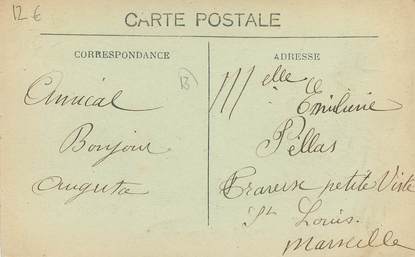 12 €
CARTE POSTALE
CORRESPONDANCE
Amical
Bonjour
Augusta
B
ADRESSE
Melle
Emilienne
Pellas
Traverse petite Viste
St Louis
Marseille